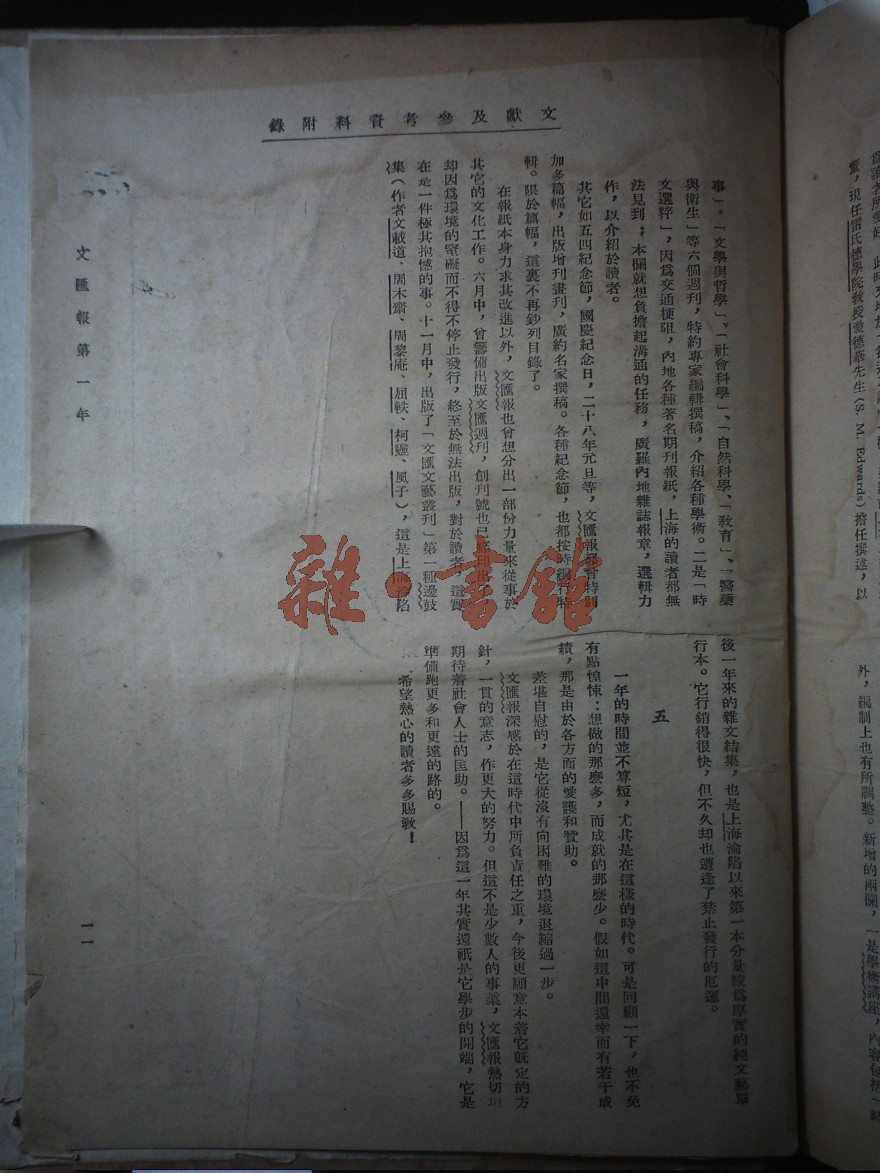 爲讀者所愛好
黨，現任雷氏德學院敎授愛德華先生(S. M. Edwards)擔任撰述，以
外，編制上也有所調整。新增的兩欄，一是學術講座，內容包括
文獻及參考資料附錄
事」、「文學與哲學」、「社會科學」、「自然科學」、「敎育」、「醫藥
與衛生」等六個週刊，特約專家編輯撰稿，介紹各種學術。二是「時
文選粹」，因爲交通梗阻，內地各種著名期刊報紙，上海的讀者都無
法見到；本欄就想負擔起溝通的任務，廣羅內地雜誌報章，選輯力
作，以介紹於讀者。
其它如五四紀念節，國慶紀念日，二十八年元旦等，文匯報都曾特別
加多篇幅，出版增刊畫刊，廣約名家撰稿。各種紀念節，也都按時編行特
輯。限於篇幅，這裏不再鈔列目錄了。
在報紙本身力求其改進以外，文匯報也曾想分出一部份力量來從事於
其它的文化工作。六月中，曾籌備出版文匯週刊，創刊號也已經印出了
却因爲環境的窒礙而不得不停止發行，終至於無法出版，對於讀者，這實
在是一件極其抱憾的事。十一月中，出版了「文匯文藝叢刊」第一種邊鼓
集（作者文載道、周木齋、周黎庵、屈軼、柯靈、風子），這是上海淪陷
後一年來的雜文結集，也是上海淪陷以來第一本分量較爲厚實的純文藝單
行本。它行銷得很快，但不久却也遭逢了禁止發行的厄運。
五
一年的時間並不算短，尤其是在這樣的時代。可是回顧一下，也不免
有點惶悚：想做的那麼多，而成就的那麼少。假如這中間還幸而有若干成
績，那是由於各方面的愛護和贊助。
差堪自慰的，是它從沒有向困難的環境退縮過一步。
文匯報深感於在這時代中所負責任之重，今後更願意本着它旣定的方
針，一貫的意志，作更大的努力。但這不是少數人的事業，文匯報熱切地
期待着社會人士的匡助。——因爲這一年其實還祇是它學步的開端，它是
準備跑更多和更遠的路的。
希望熱心的讀者多多賜敎！
文匯報第一年
一一
雜·書館